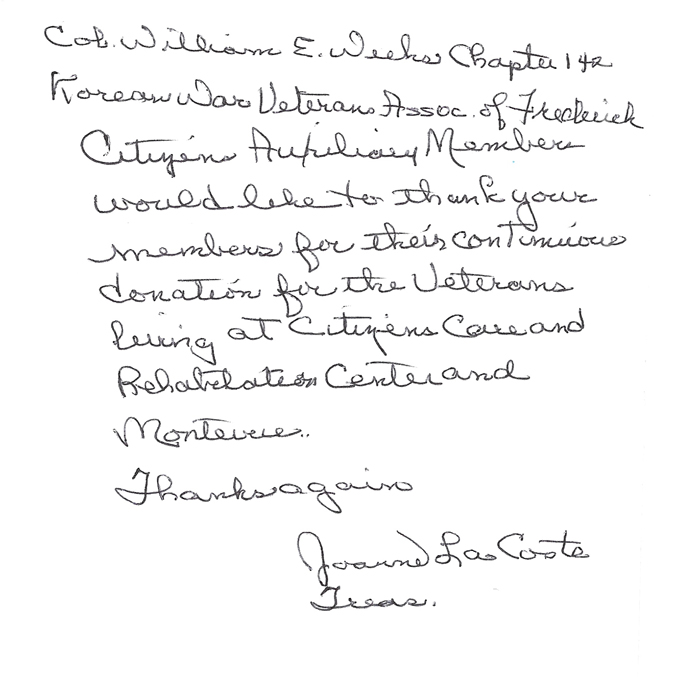 Col. William E. Weeks Chapter 142
Korean War Veterans Assoc. of Frederick
Citizens Auxiliary Members
would like to thank your
members for their continuious
donation for the Veterans
living at Citizens Care and
Rehabilation Center and
Montevue..
Thanks again
Joanne La Coste
Treas.